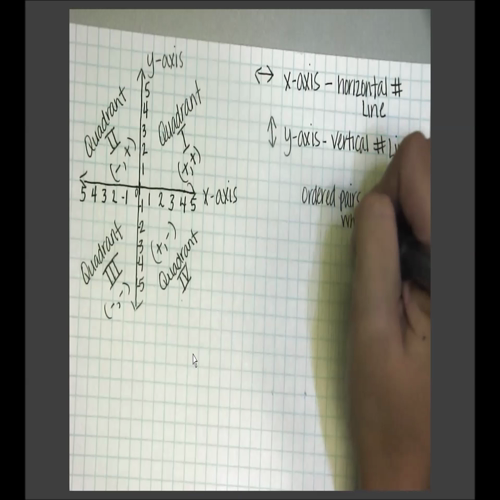 y-axis
5
4
3
2
1
Quadrant
II
(-,+)
Quadrant
I
(+,+)
5 4 3 2 -1 0 1 2 3 4 5 x-axis
1
2
3
4
5
Quadrant
III
(-,-)
(+,-)
Quadrant
IV
↔ x-axis - horizontal #
Line
↕ y-axis - vertical #
ordered pairs